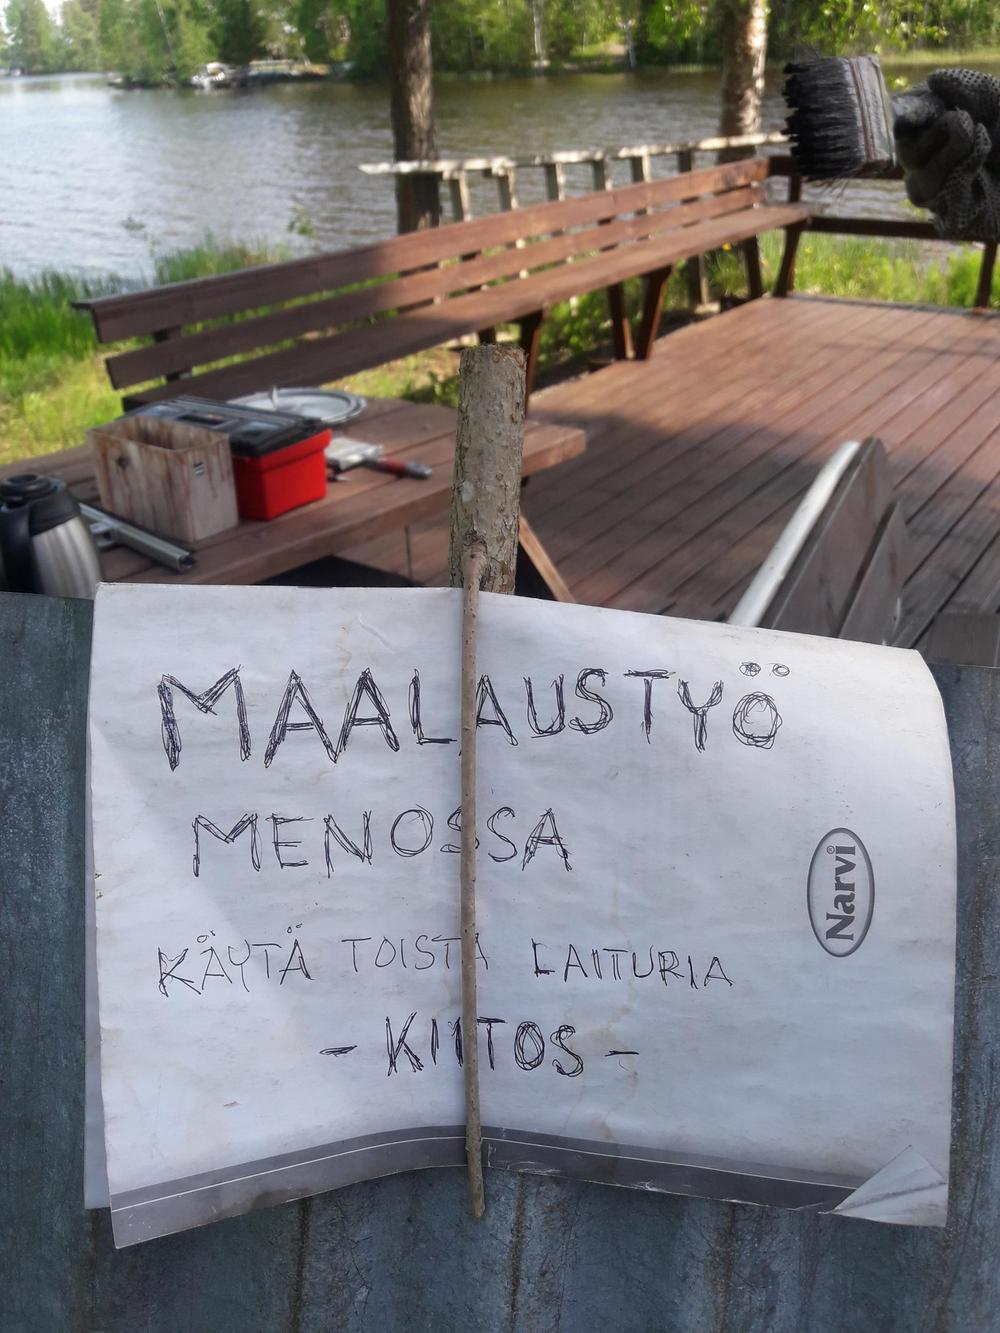 MAALAUSTYÖ
MENOSSA
KÄYTÄ TOISTA LAITURIA
- KIITOS -
Narvi®